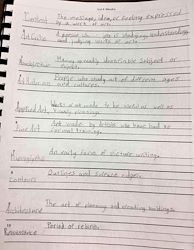 Content - The message, idea, or feeling expressed
by a work of art.
Art Critic - A person who
and judging works of art.
Having a readily identifiable subject or
People who study art of different ages
and cultures.
Applied Art - Works of art made to be useful as well as
visually pleasing.
Art made by artists who have had no
formal training.
Hieroglyphic - An early form of picture writing.
Contours - Outlines and surface edges.
Architecture - The art of planning and creating buildings.
Renaissance - Period of rebirth.